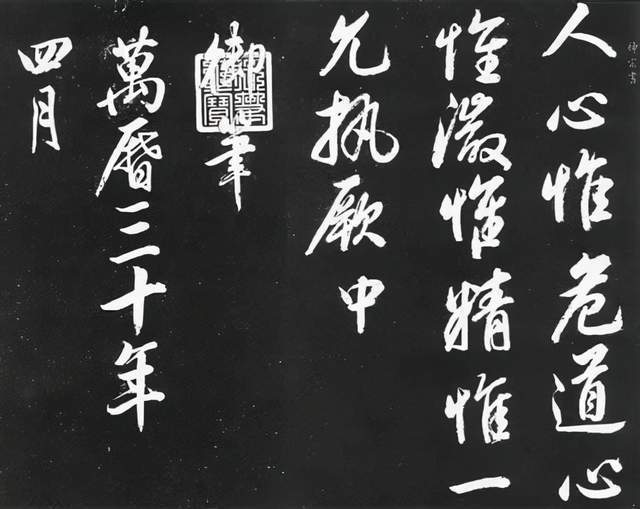 神宗書
人心惟危道心
惟微惟精惟一
允執厥中
御筆
萬曆三十年
四月